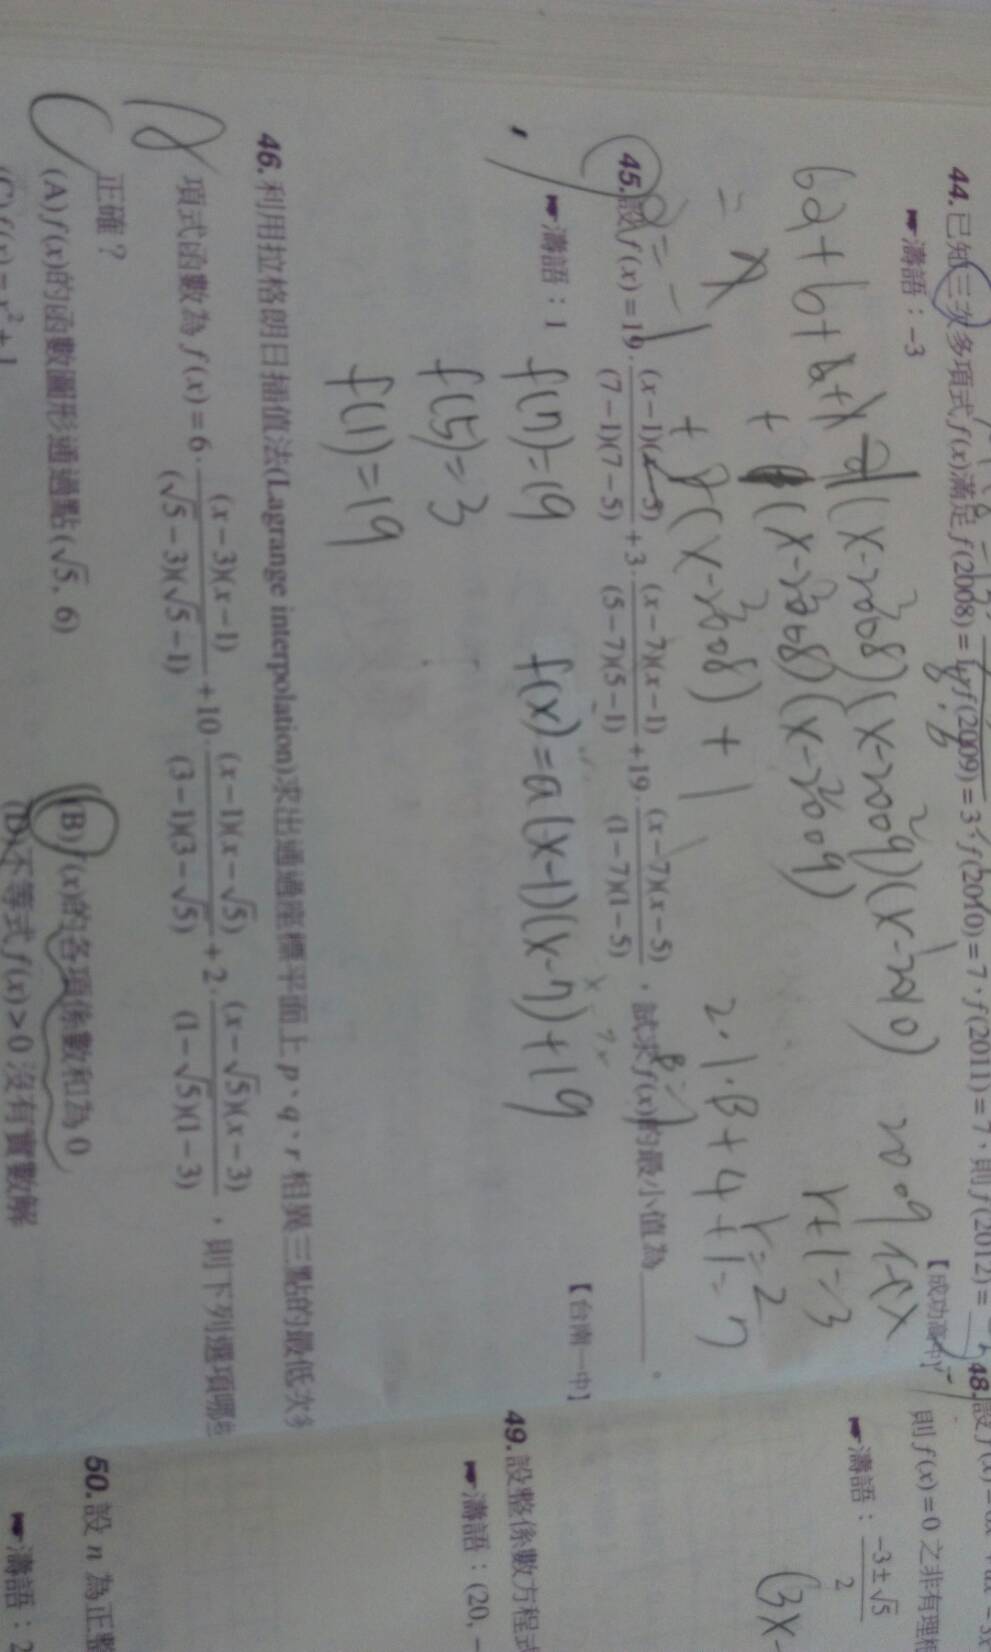 44.已知三次多項式f(x)滿足f(2008)=1,f(2009)=3,f(2010)=7,f(2011)=7,則f(2012)=
【成功高中】
☛濤語:-3
(x-2008)(x-2009)(x-2010)
(x-2008)(x-2009)
(x-2008)+1
r+1=3
r=2
2·1·B+4+1=7
B=1
45.設f(x)=19·(x-1)(x-5)/(7-1)(7-5)+3·(x-7)(x-1)/(5-7)(5-1)+19·(x-7)(x-5)/(1-7)(1-5),試求f(x)的最小值為______。
【台南一中】
☛濤語:1
f(7)=19
f(5)=3
f(1)=19
f(x)=a(x-1)(x-7)+19
46.利用拉格朗日插值法(Lagrange interpolation)求出通過座標平面上p、q、r相異三點的最低次多
項式函數為f(x)=6·(x-3)(x-1)/(√5-3)(√5-1)+10·(x-1)(x-√5)/(3-1)(3-√5)+2·(x-√5)(x-3)/(1-√5)(1-3),則下列選項哪些
正確?
(A)f(x)的函數圖形通過點(√5, 6)
(B)f(x)的各項係數和為0
(C)f(x)=x²+1
(D)不等式f(x)>0沒有實數解
48.設f(x)=
則f(x)=0之非有理
☛濤語:-3±√5/2
(3x-
49.設整係數方程式
☛濤語:(20, -
50.設n為正整
☛濤語:2